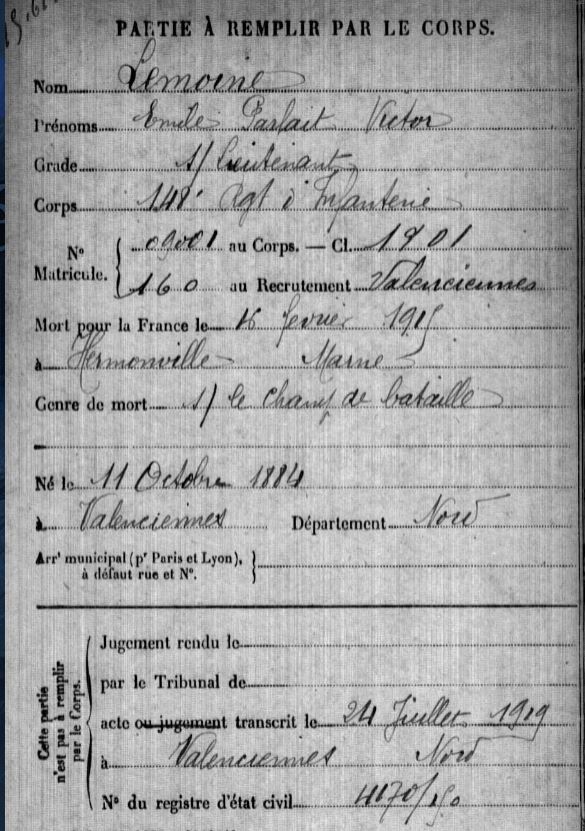 PARTIE À REMPLIR PAR LE CORPS.
Nom Lemoine
Prénoms Emile Parfait Victor
Grade s/ Lieutenant
Corps 148e Rgt d'Infanterie
N° Matricule. 09001 au Corps. — Cl. 1901
160 au Recrutement Valenciennes
Mort pour la France le 16 fevrier 1915
à Hermonville Marne
Genre de mort s/ le champ de bataille
Né le 11 Octobre 1884
à Valenciennes Département Nord
Arrt municipal (pr Paris et Lyon),
à défaut rue et N°.
Cette partie n'est pas à remplir par le Corps.
Jugement rendu le
par le Tribunal de
acte ou jugement transcrit le 24 Juillet 1919
à Valenciennes Nord
N° du registre d'état civil